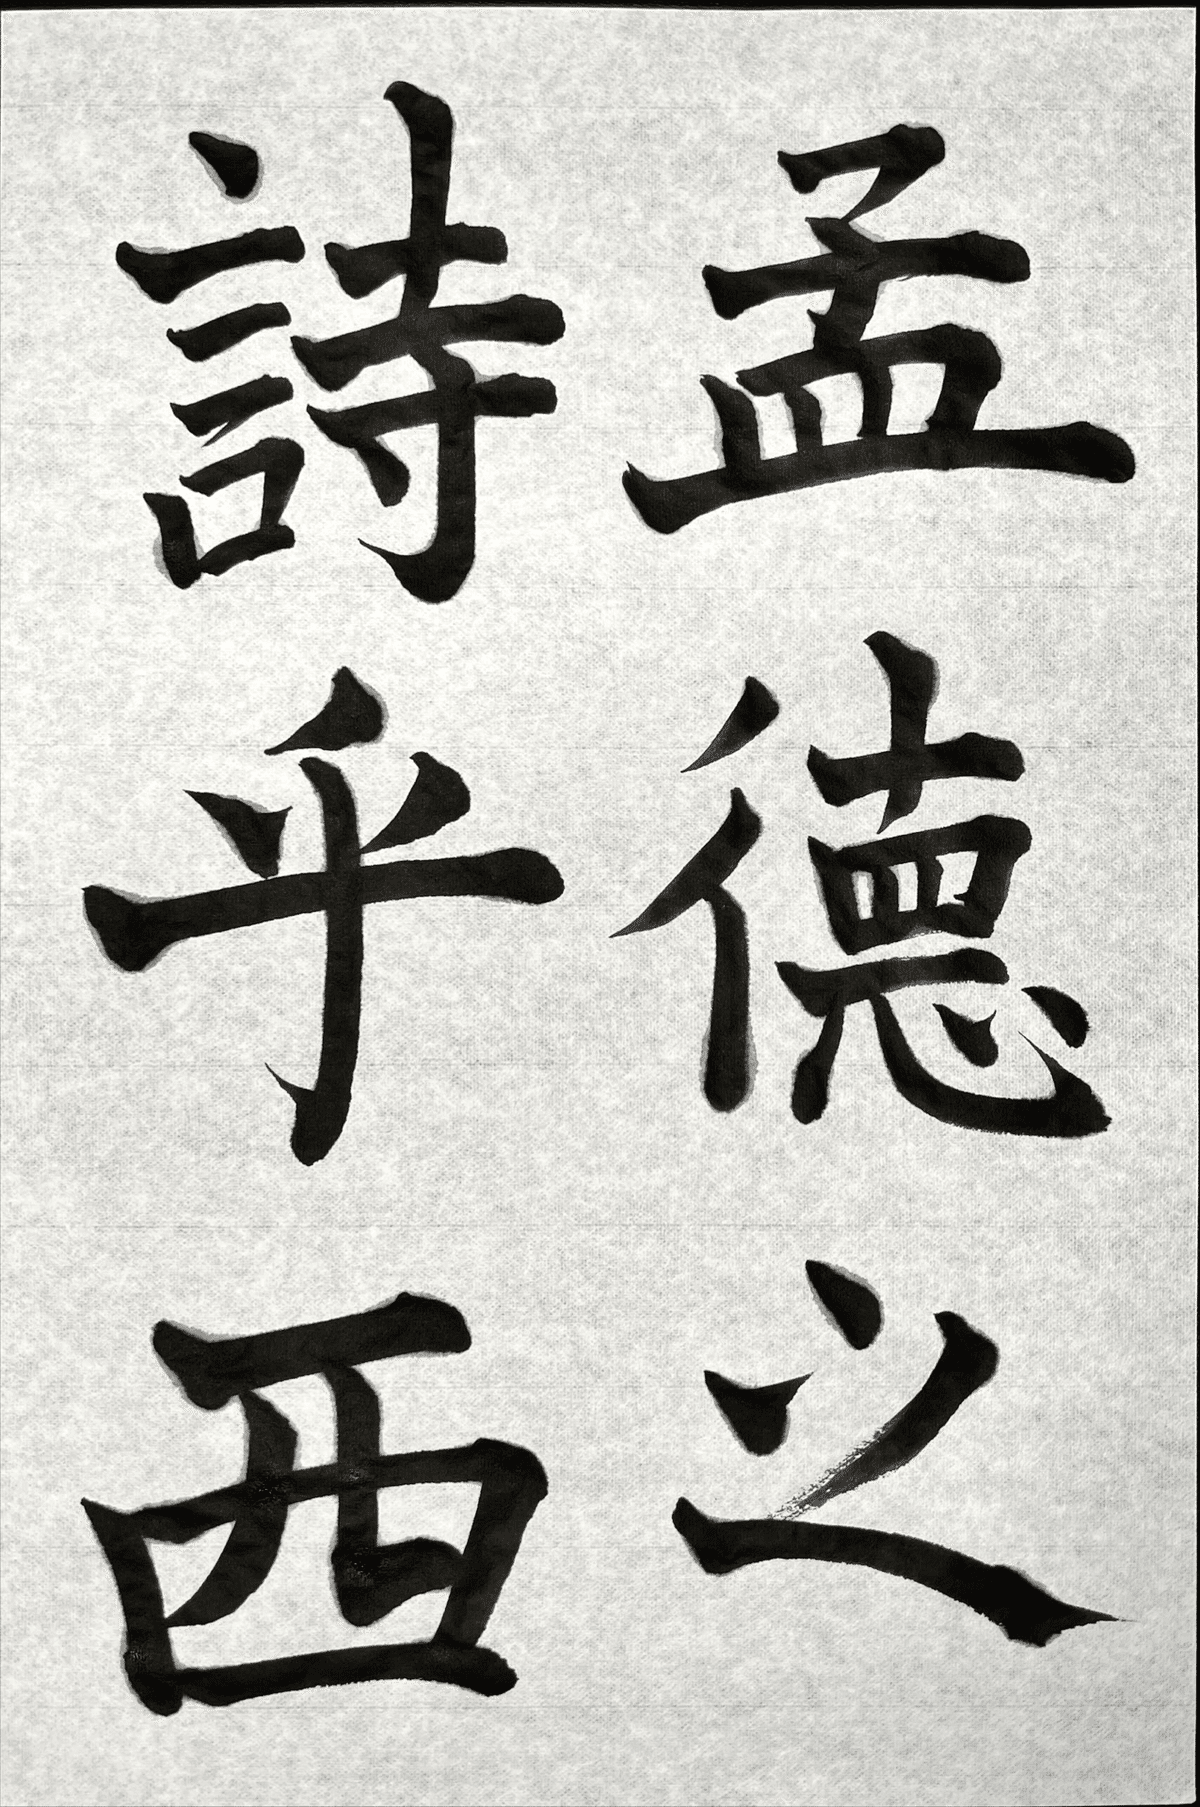 孟德之
詩乎西